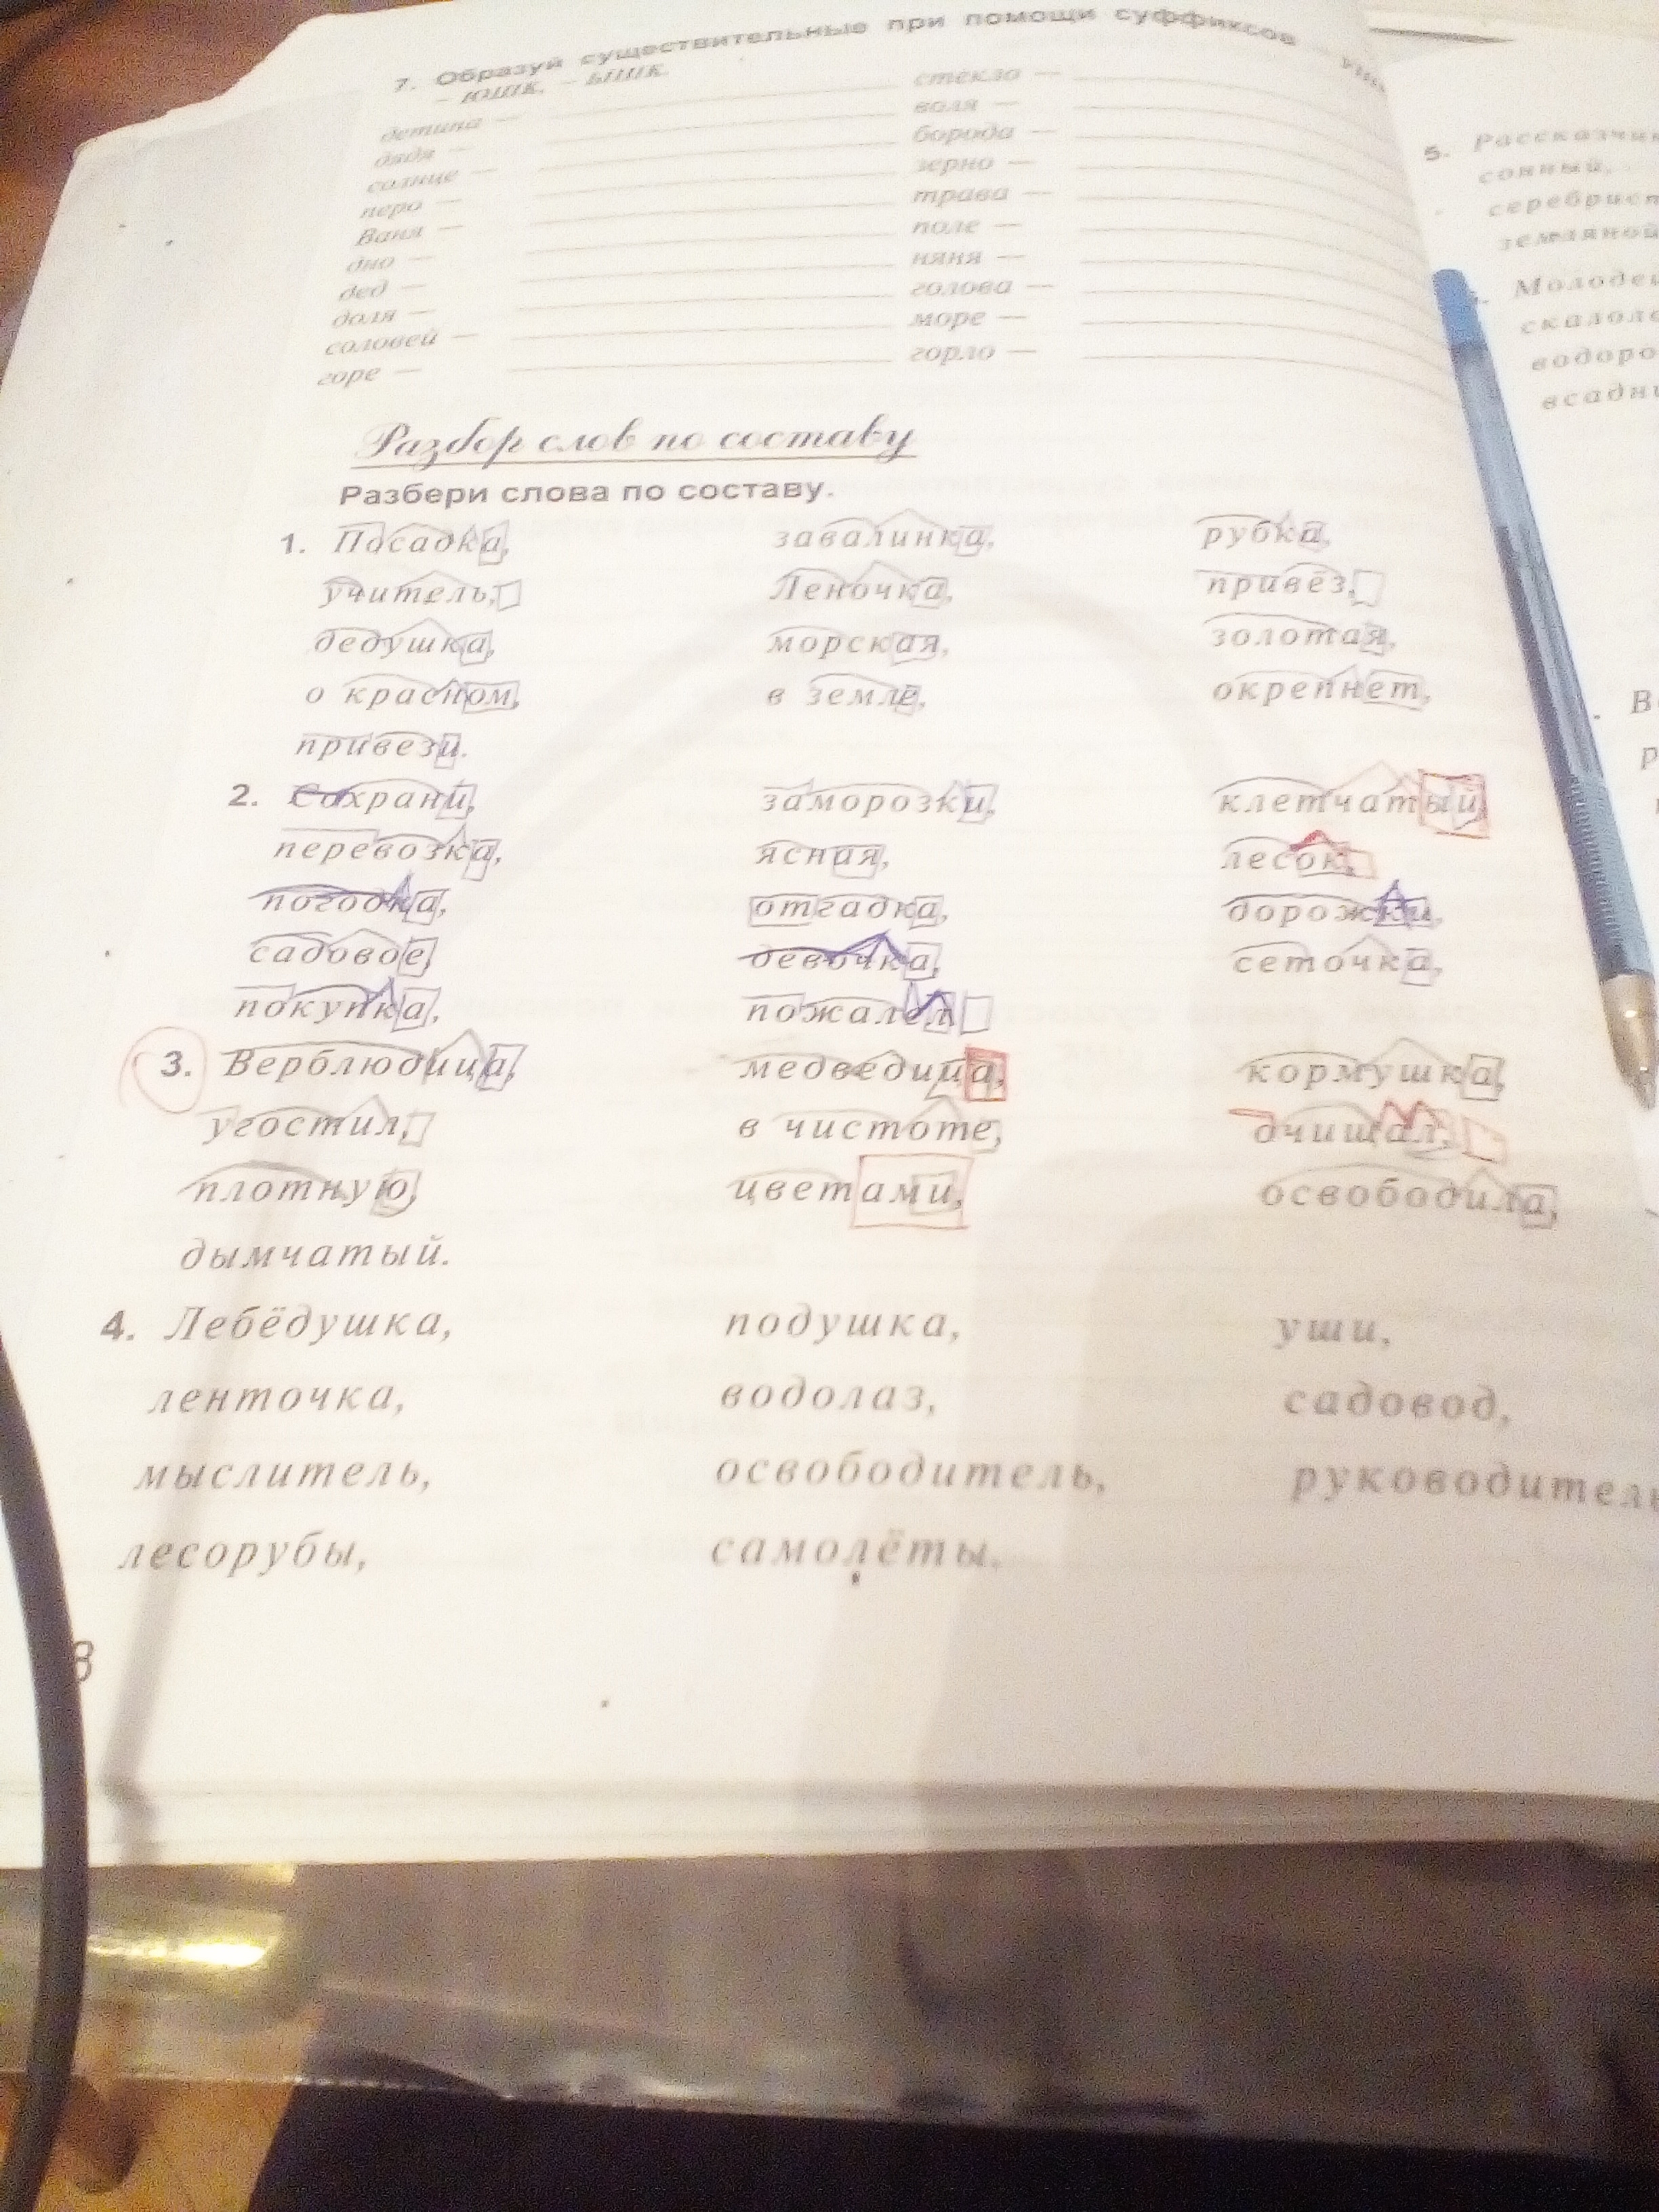 7. Образуй существительные при помощи суффиксов
– юшк, – ышк.
детина — стекло —
дядя — воля —
солнце — борода —
перо — зерно —
Ваня — трава —
дно — поле —
дед — няня —
доля — голова —
соловей — море —
горе — горло —
Разбор слов по составу
Разбери слова по составу.
1. Посадка, завалинка, рубка,
учитель, Леночка, привёз,
дедушка, морская, золотая,
о красном, в земле, окрепнет,
привези.
2. Сохрани, заморозки, клетчатый,
перевозка, ясная, лесок,
погодка, отгадка, дорожки,
садовое, девочка, сеточка,
покупка, пожалел
3. Верблюдица, медведица, кормушка,
угостил, в чистоте, дчишал,
плотную, цветами, освободила,
дымчатый.
4. Лебёдушка, подушка, уши,
ленточка, водолаз, садовод,
мыслитель, освободитель, руководитель
лесорубы, самолёты.
5.
сонный,